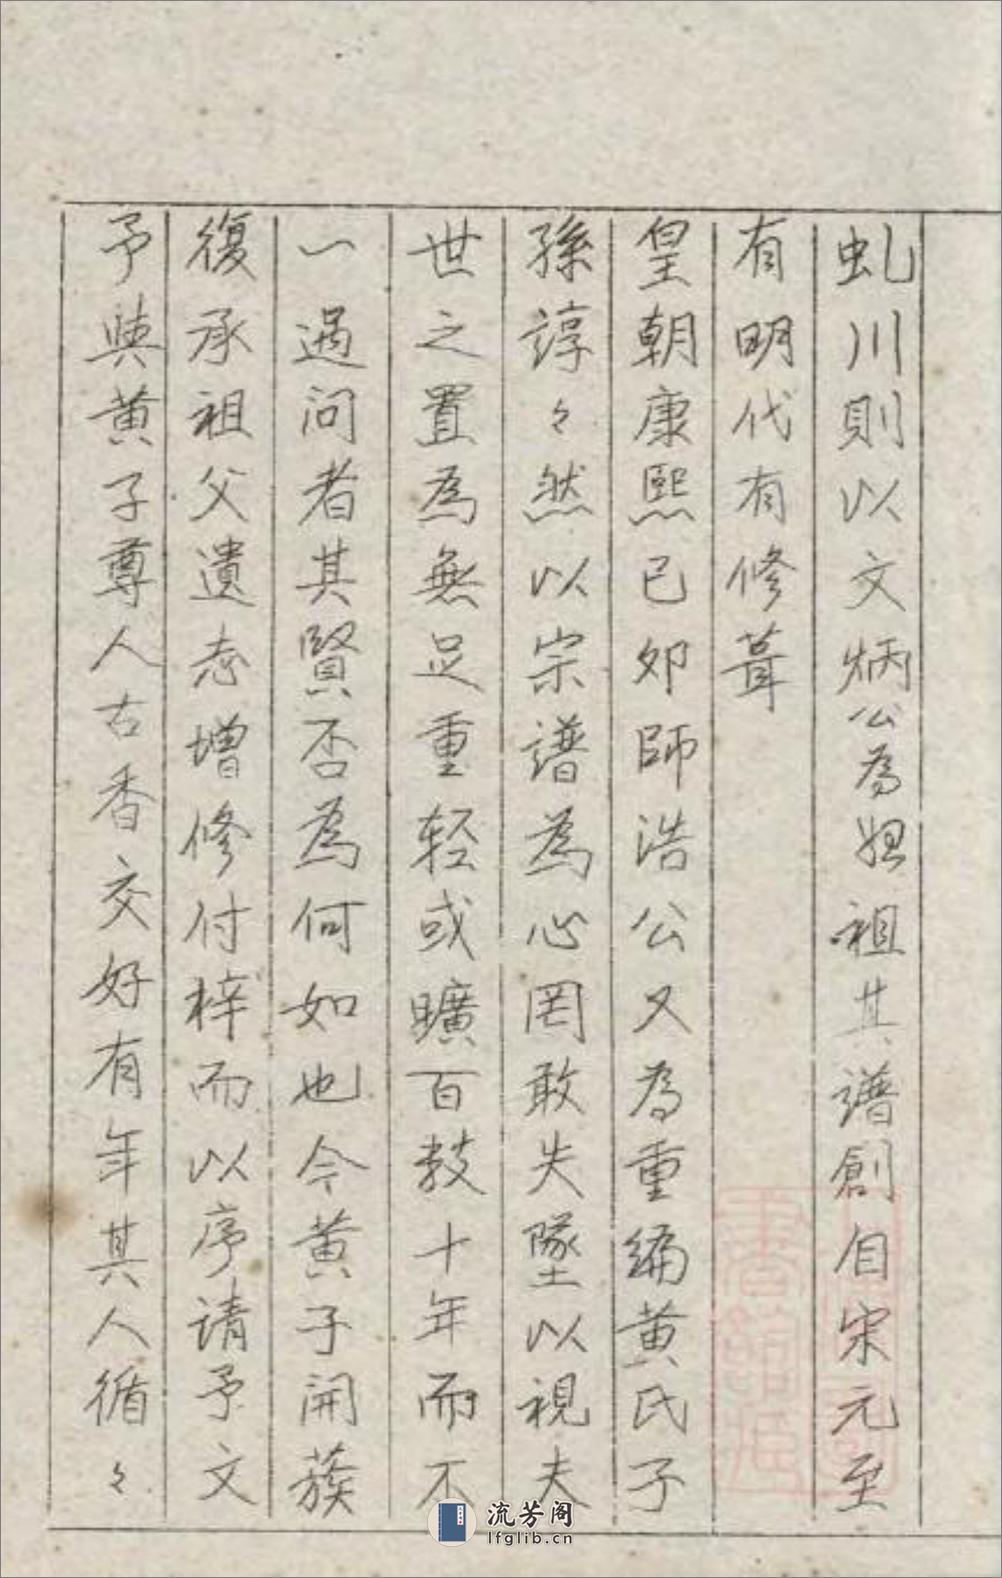 虬川則以文炳公為始祖其譜創自宋元至
有明代有修葺
皇朝康熙己卯師浩公又為重編黄氏子
孫諄々然以宗譜為心罔敢失墜以視夫
世之置為無足重轻或曠百数十年而不
一過问者其賢否為何如也今黄子開蔟
復承祖父遺志增修付梓而以序请予文
予與黄子尊人古香交好有年其人循々
流芳阁
lfglib.cn